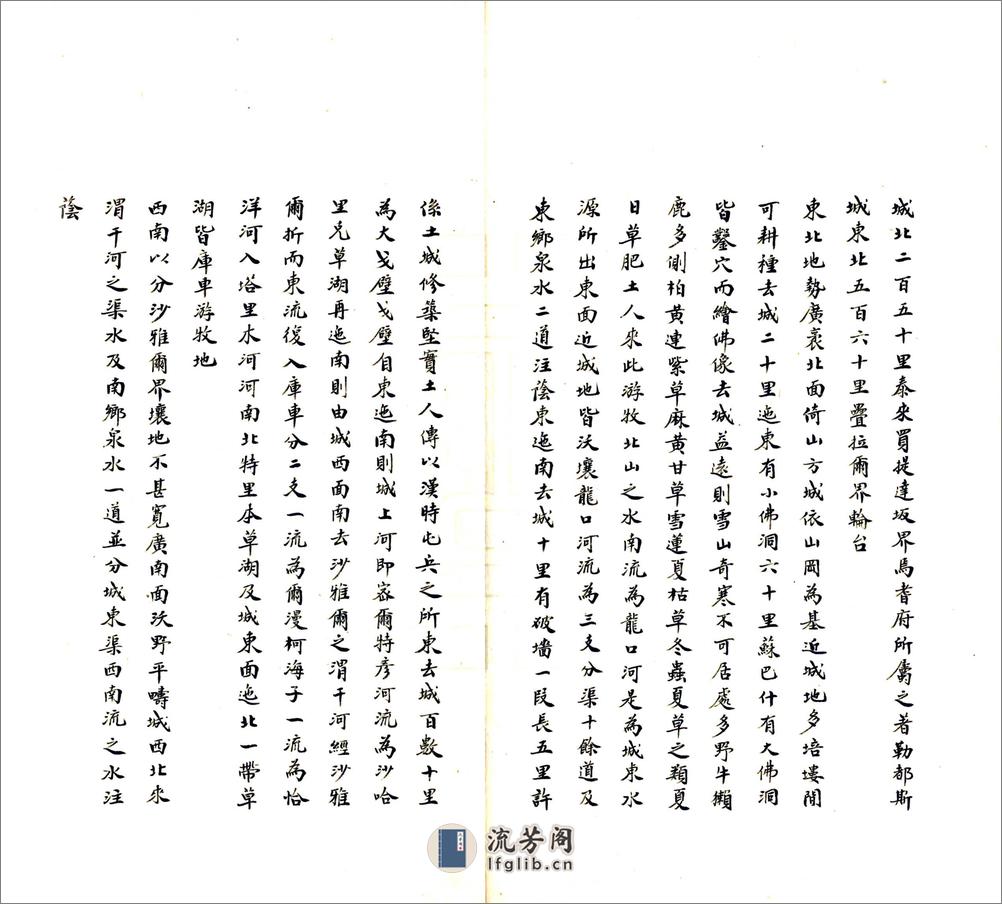 城北二百五十里泰來買提達坂界焉耆府所屬之著勒都斯
城東北五百六十里疊拉爾界輪台
東北地勢廣袤北面倚山方城依山岡為基近城地多培塿間
可耕種去城二十里迤東有小佛洞六十里蘇巴什有大佛洞
皆鑿穴而繪佛像去城益遠則雪山奇寒不可居處多野牛獺
鹿多側柏黃連紫草麻黃甘草雪蓮夏枯草冬蟲夏草之類夏
日草肥土人來此游牧北山之水南流為龍口河是為城東水
源所出東面近城地皆沃壤龍口河流為三支分渠十餘道及
東鄉泉水二道注蔭東迤南去城十里有破墻一段長五里許
係土城修築堅實土人傳以漢時屯兵之所東去城百數十里
為大戈壁戈壁自東迤南則城上河即密爾特彥河流為沙哈
里兄草湖再迤南則由城西面南去沙雅爾之渭干河經沙雅
爾折而東流復入庫車分二支一流為爾漫柯海子一流為恰
洋河入塔里木河河南北特里本草湖及城東面迤北一帶草
湖皆庫車游牧地
西南以分沙雅爾界壤地不甚寬廣南面沃野平疇城西北來
渭干河之渠水及南鄉泉水一道並分城東渠西南流之水注
蔭
流芳阁
lfglib.cn